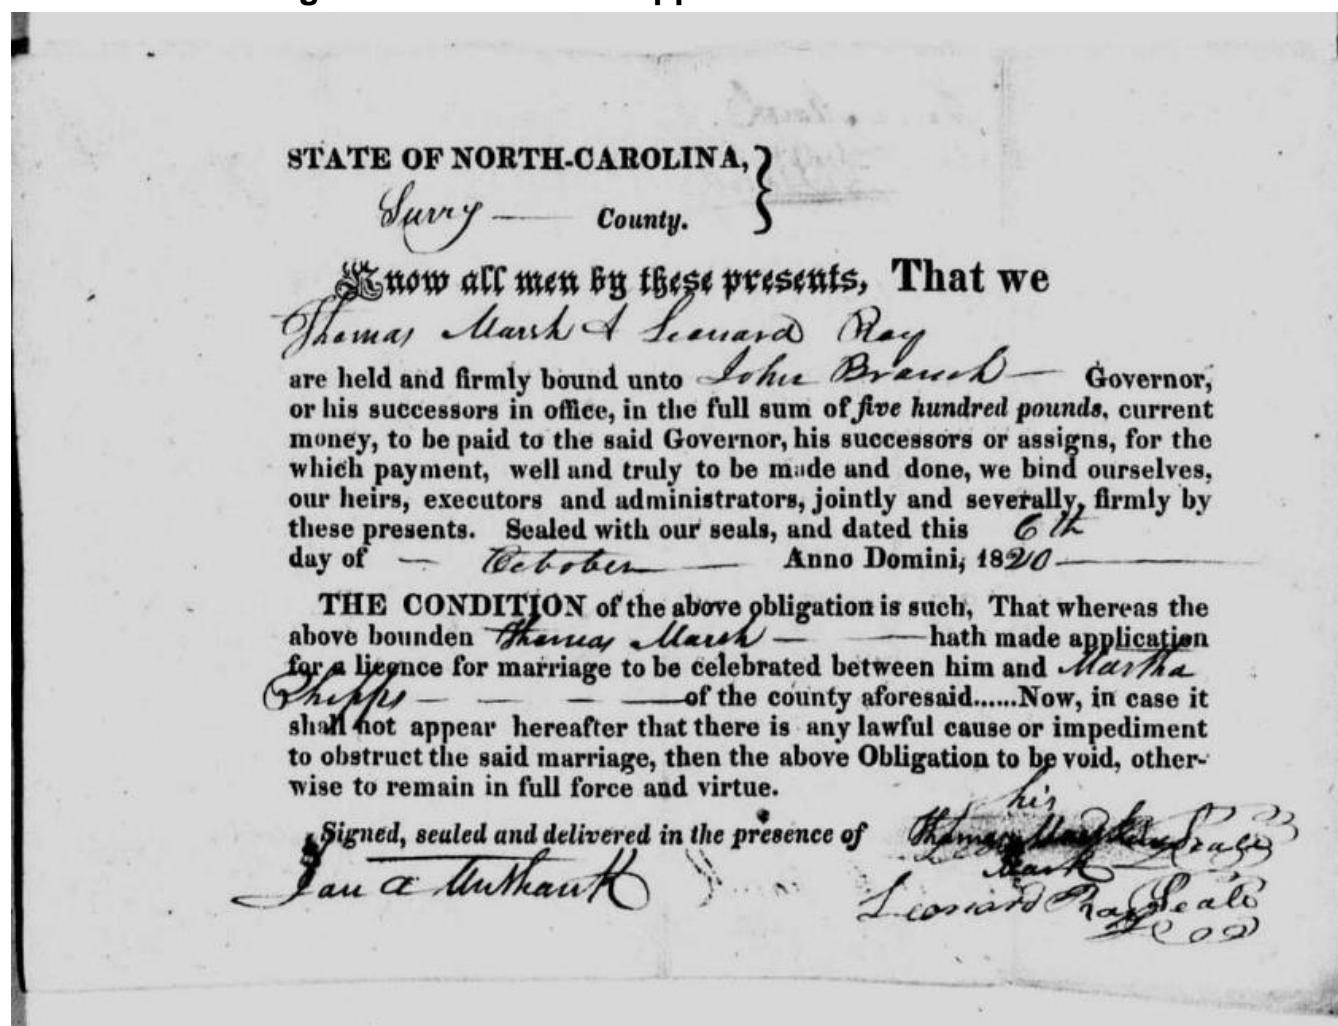 STATE OF NORTH-CAROLINA,
Surry County.
Know all men by these presents, That we
Thomas Marsh & Leonard Ray
are held and firmly bound unto John Branch Governor,
or his successors in office, in the full sum of five hundred pounds, current
money, to be paid to the said Governor, his successors or assigns, for the
which payment, well and truly to be made and done, we bind ourselves,
our heirs, executors and administrators, jointly and severally, firmly by
these presents. Sealed with our seals, and dated this 6th
day of October Anno Domini, 1820
THE CONDITION of the above obligation is such, That whereas the
above bounden Thomas Marsh hath made application
for a licence for marriage to be celebrated between him and Martha
Shipps of the county aforesaid......Now, in case it
shall not appear hereafter that there is any lawful cause or impediment
to obstruct the said marriage, then the above Obligation to be void, other-
wise to remain in full force and virtue.
his
Signed, sealed and delivered in the presence of Thomas Marsh Seal
Mark
Leonard Ray Seal